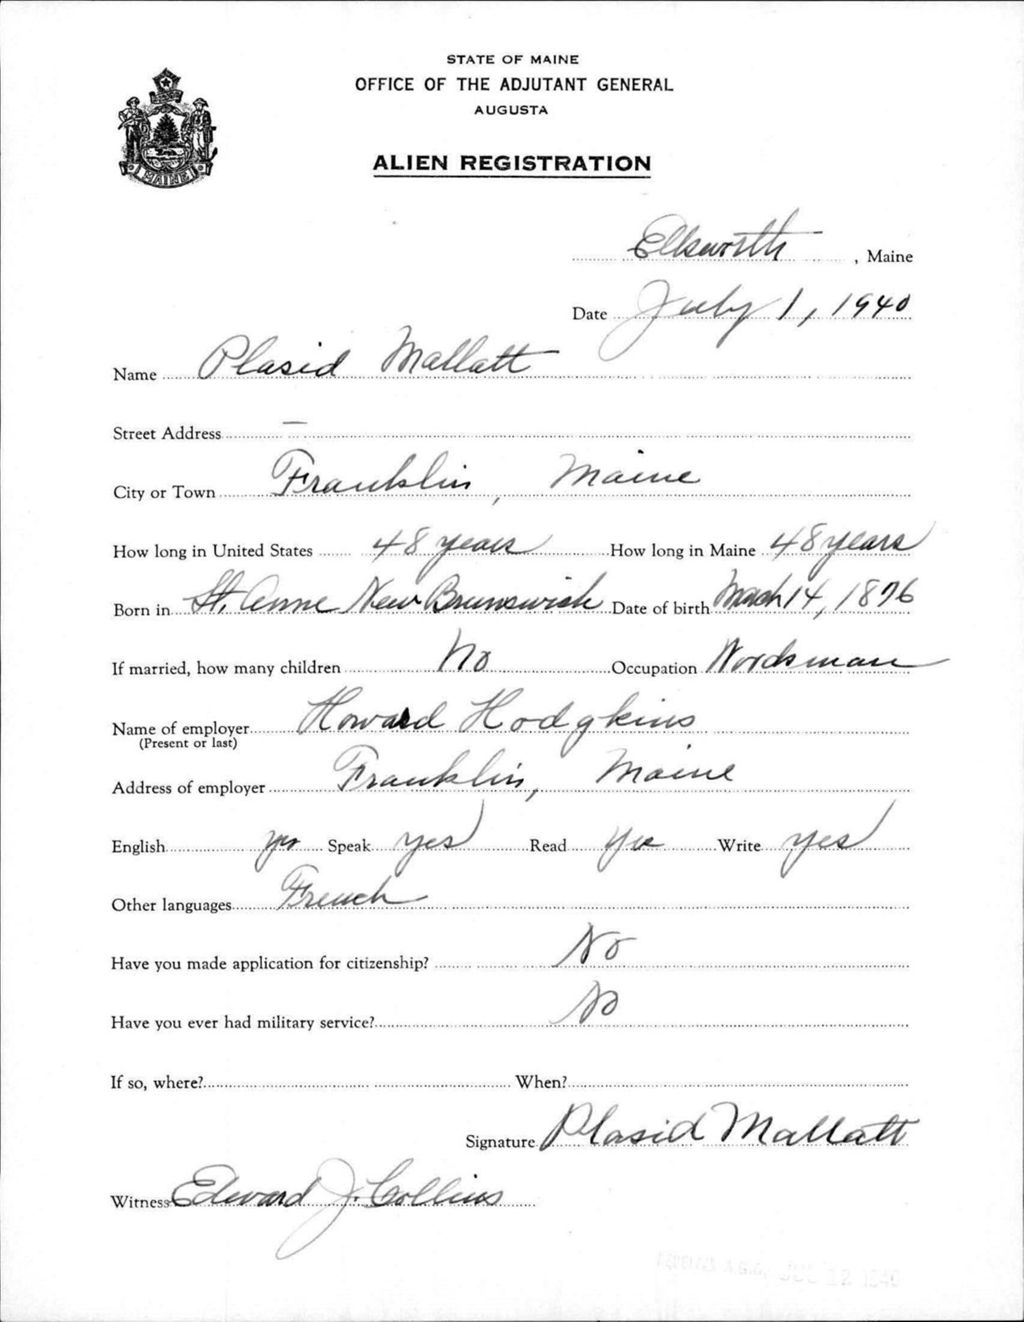 STATE OF MAINE
OFFICE OF THE ADJUTANT GENERAL
AUGUSTA
ALIEN REGISTRATION
MAINE
Ellsworth, Maine
Date July 1, 1940
Name Plasid Mallatt
Street Address —
City or Town Franklin, Maine
How long in United States 48 years How long in Maine 48 years
Born in St. Anne New Brunswick Date of birth March 14, 1876
If married, how many children No Occupation Wordsman
Name of employer Howard Hodgkins
(Present or last)
Address of employer Franklin, Maine
English yes Speak yes Read yes Write yes
Other languages French
Have you made application for citizenship? No
Have you ever had military service? No
If so, where? When?
Signature Plasid Mallatt
Witness Edward J. Collins